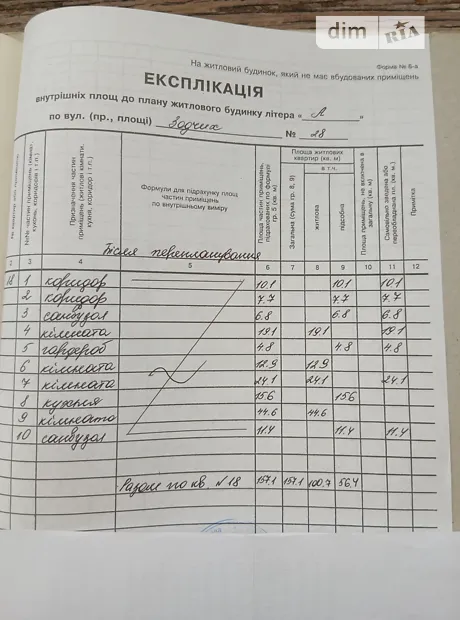 dim RIA
Форма № 6-а
На житловий будинок, який не має вбудованих приміщень
ЕКСПЛІКАЦІЯ
внутрішніх площ до плану житлового будинку літера « А »
по вул. (пр., площі) Зодчих № 28
№№ частин приміщень (кімнат, кухонь, коридорів і т.п.)
Призначення частин приміщень (житлові кімнати, кухня, коридор і т.п.)
Формули для підрахунку площ частин приміщень по внутрішньому виміру
Площа частин приміщень, підрахованих по формулі гр. 5 (кв. м)
Площа житлових квартир (кв. м)
Загальна (сума гр. 8, 9)
в т.ч.
житлова
підсобна
Площа приміщень, не включена в загальну (кв. м)
Самовільно зведена або переобладнана пл. (кв. м.)
Примітка
Після перепланування
2 3 4 5 6 7 8 9 10 11 12
18 1 коридор 10.1 10.1 10.1
2 коридор 7.7 7.7 7.7
3 санвузол 6.8 6.8 6.8
4 кімната 19.1 19.1 19.1
5 гардероб 4.8 4.8 4.8
6 кімната 12.9 12.9
7 кімната 24.1 24.1 24.1
8 кухня 15.6 15.6
9 кімната 44.6 44.6
10 санвузол 11.4 11.4 11.4
Разом по кв. N 18 157.1 157.1 100.7 56.4